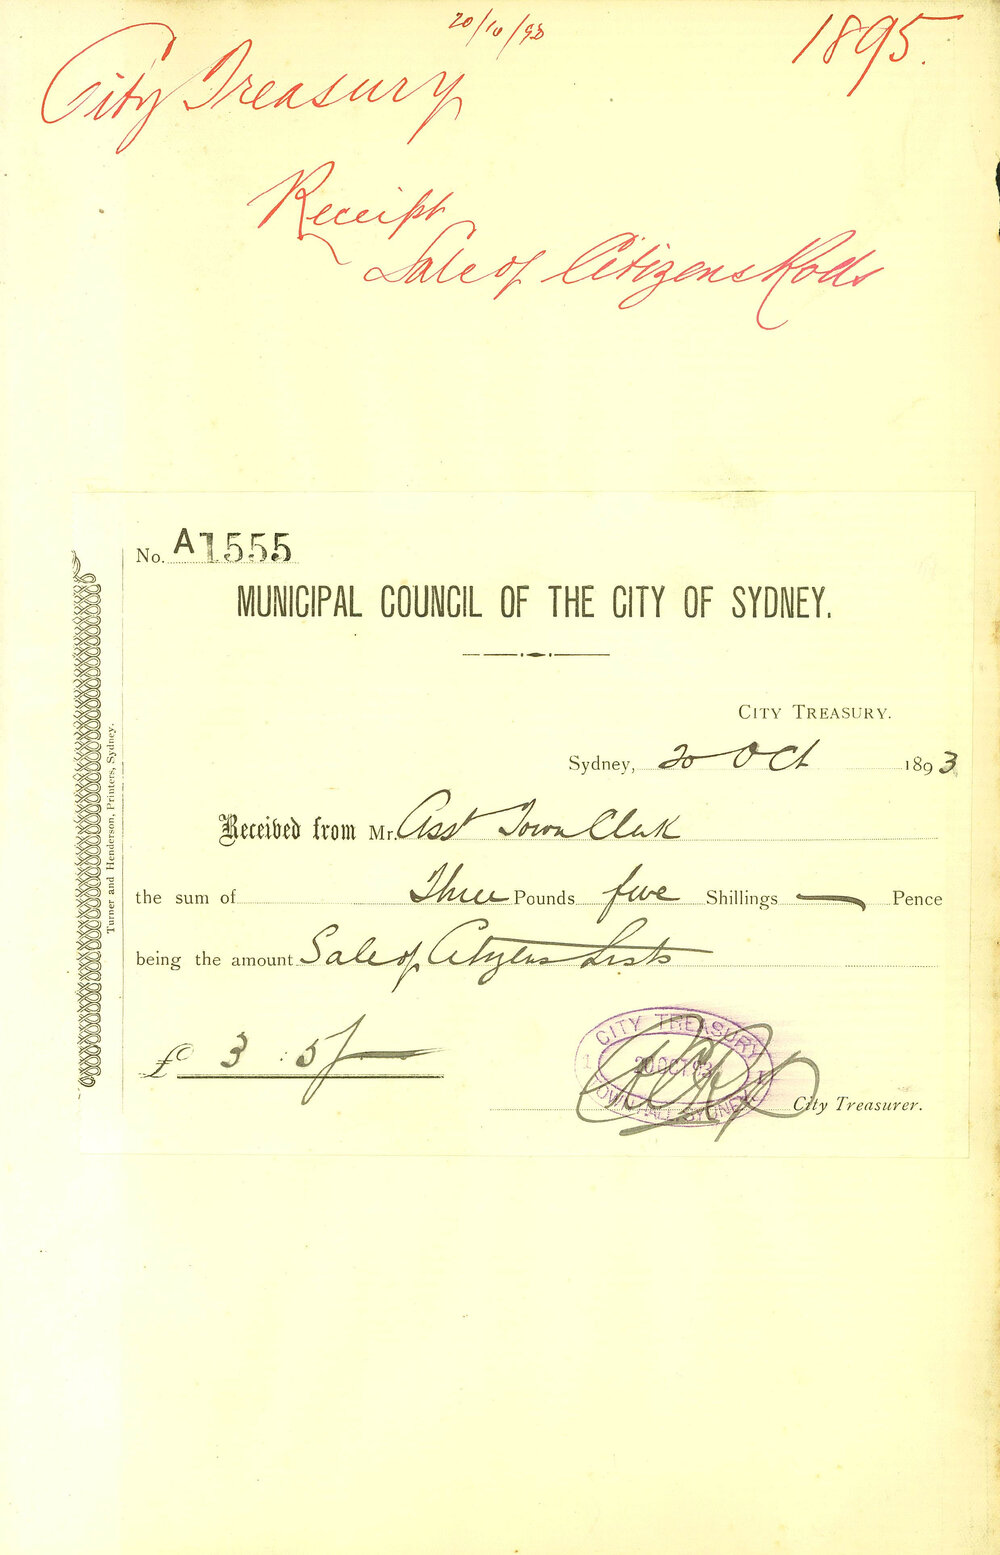 20/10/93
1895.
City Treasury
Receipt
Sale of Citizens Rolls
No. A1555
MUNICIPAL COUNCIL OF THE CITY OF SYDNEY.
CITY TREASURY.
Sydney, 20 Oct 1893
Received from Mr. Asst Town Clerk
the sum of Three Pounds five Shillings — Pence
being the amount Sale of Citizens Lists
£ 3 : 5/—
CITY TREASURY
20 OCT 93
TOWN HALL, SYDNEY
City Treasurer.
Turner and Henderson, Printers, Sydney.